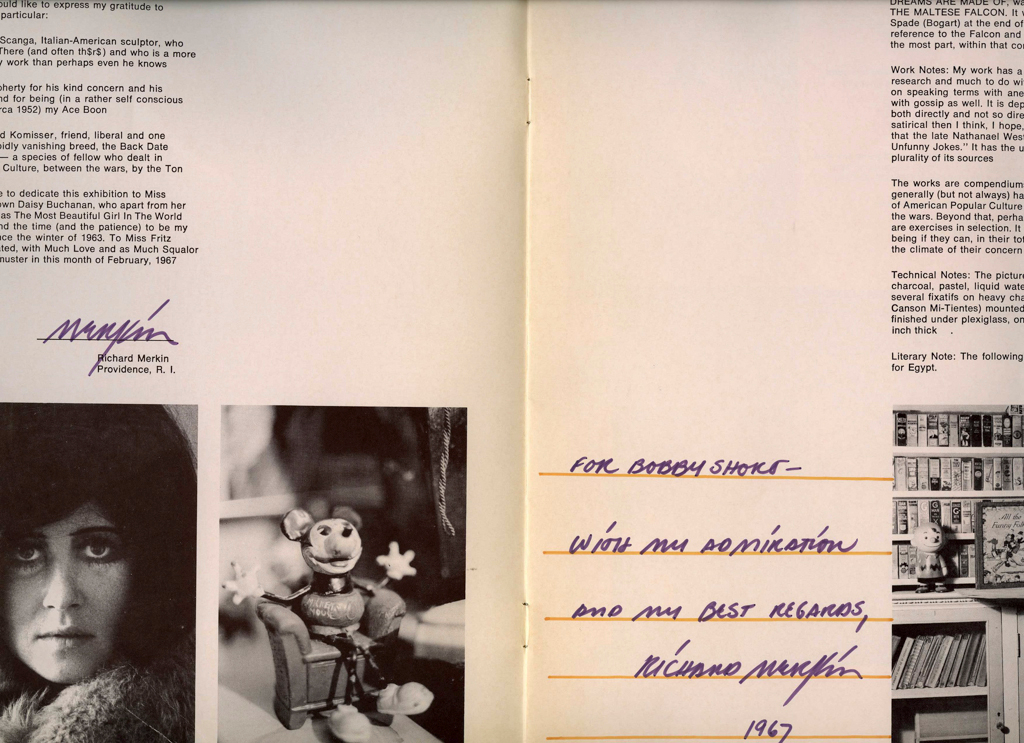 ould like to express my gratitude to
particular:
Scanga, Italian-American sculptor, who
There (and often th$r$) and who is a more
y work than perhaps even he knows
oherty for his kind concern and his
nd for being (in a rather self conscious
rca 1952) my Ace Boon
d Komisser, friend, liberal and one
pidly vanishing breed, the Back Date
— a species of fellow who dealt in
Culture, between the wars, by the Ton
e to dedicate this exhibition to Miss
own Daisy Buchanan, who apart from her
as The Most Beautiful Girl In The World
nd the time (and the patience) to be my
nce the winter of 1963. To Miss Fritz
ted, with Much Love and as Much Squalor
muster in this month of February, 1967
Merkin
Richard Merkin
Providence, R. I.
FOR BOBBY SHORT—
WITH MY ADMIRATION
AND MY BEST REGARDS,
RICHARD MERKIN
1967
DREAMS ARE MADE OF, wa
THE MALTESE FALCON. It w
Spade (Bogart) at the end of
reference to the Falcon and
the most part, within that con
Work Notes: My work has a
research and much to do wi
on speaking terms with ane
with gossip as well. It is dep
both directly and not so dire
satirical then I think, I hope,
that the late Nathanael Wes
Unfunny Jokes." It has the u
plurality of its sources
The works are compendium
generally (but not always) ha
of American Popular Culture
the wars. Beyond that, perha
are exercises in selection. It
being if they can, in their tot
the climate of their concern
Technical Notes: The picture
charcoal, pastel, liquid wate
several fixatifs on heavy cha
Canson Mi-Tientes) mounted
finished under plexiglass, on
inch thick .
Literary Note: The following
for Egypt.
All the
Funny Fol